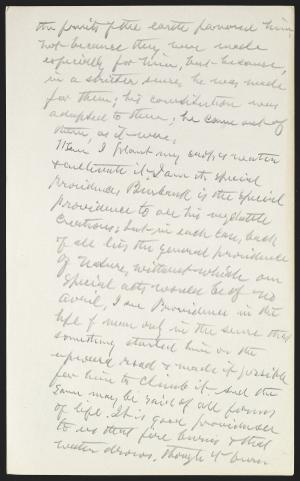 the fruits of the earth favored him,
not because they were made
especially for him, but because,
in a stricter sense, he was made
for them; his constitution was
adapted to them; he came out of
them, as it were.
When I plant my seeds, & water
& cultivate it, I am its special
providence. Burbank is the special
providence to all his vegetable
creations; but in each case, back
of all lies the general providence
of Nature, without which our
special acts would be of no
avail. I see Providence in the
life of man only in the sense that
something started him on the
upward road & made it possible
for him to climb it. And the
same may be said of all forms
of life. It is good providence
to us that fire burns & that
water drowns, though it burn